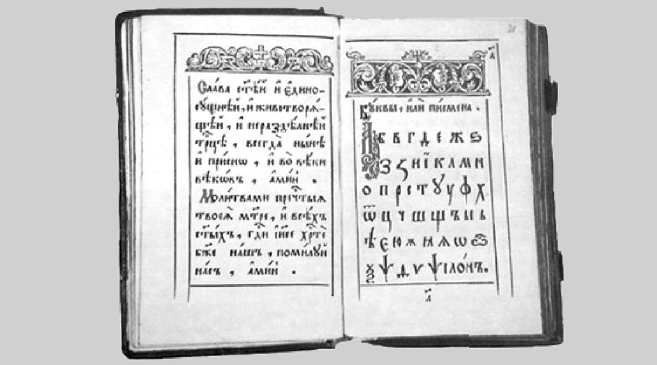 Сла́ва ст҃ѣ́й и҆ є҆дино-
сꙋ́щнѣй, и҆ животворѧ́-
щей, и҆ нераздѣ́лнѣй
трⷪ҇цѣ, всегда̀ ны́нѣ
и҆ при́снѡ, и҆ во вѣ́ки
вѣкѡ́въ, а҆ми́нь.
Моли́твами пречⷭ҇тыѧ
твоеѧ̀ мт҃ре, и҆ всѣ́хъ
ст҃ы́хъ, гдⷭ҇и і҆и҃се хрⷭ҇тѐ
бж҃е на́шъ, поми́лꙋй
на́съ, а҆ми́нь.
Бꙋ́квы, и҆лѝ пи́смена.
А б в г д е ж ѕ
з и ї к л м н
о п р с т ꙋ ф х
ѿ ц ч ш щ ъ ы ь
ѣ ю ѫ ѧ ѡ